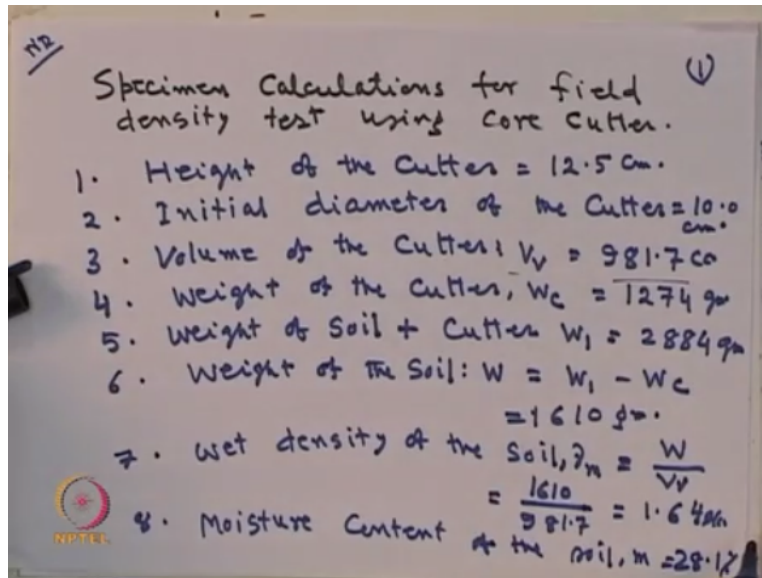 NR
(1)
Specimen Calculations for field
density test using Core Cutter.
1. Height of the Cutter = 12.5 cm.
2. Initial diameter of the Cutter = 10.0
cm.
3. Volume of the Cutter: Vv = 981.7 cc
4. Weight of the Cutter, Wc = 1274 gm
5. Weight of Soil + Cutter W1 = 2884 gm
6. Weight of the Soil: W = W1 - Wc
= 1610 gm.
7. Wet density of the Soil, γm = W/Vv
= 1610/981.7 = 1.64
8. Moisture Content of the soil, m = 28.1%
NPTEL